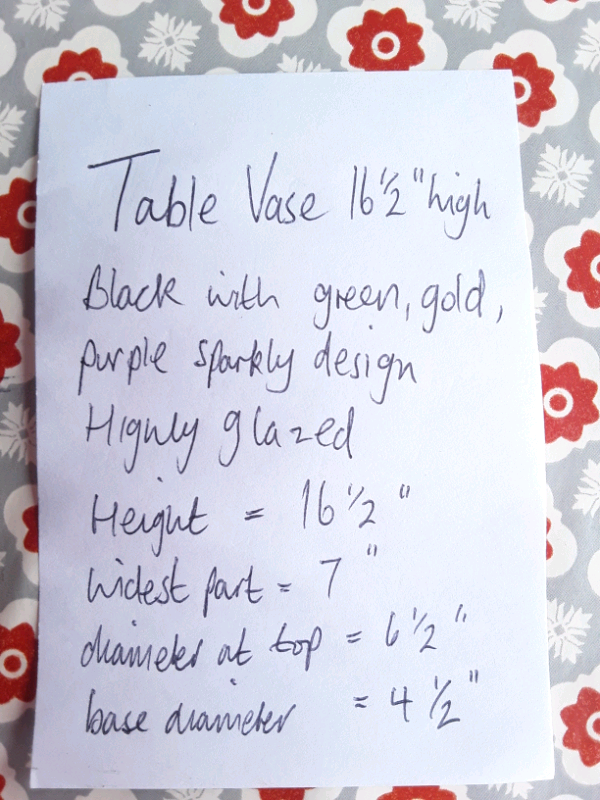 Table Vase 16 1/2" high
Black with green, gold,
purple sparkly design
Highly glazed
Height = 16 1/2"
Widest part = 7"
diameter at top = 6 1/2"
base diameter = 4 1/2"